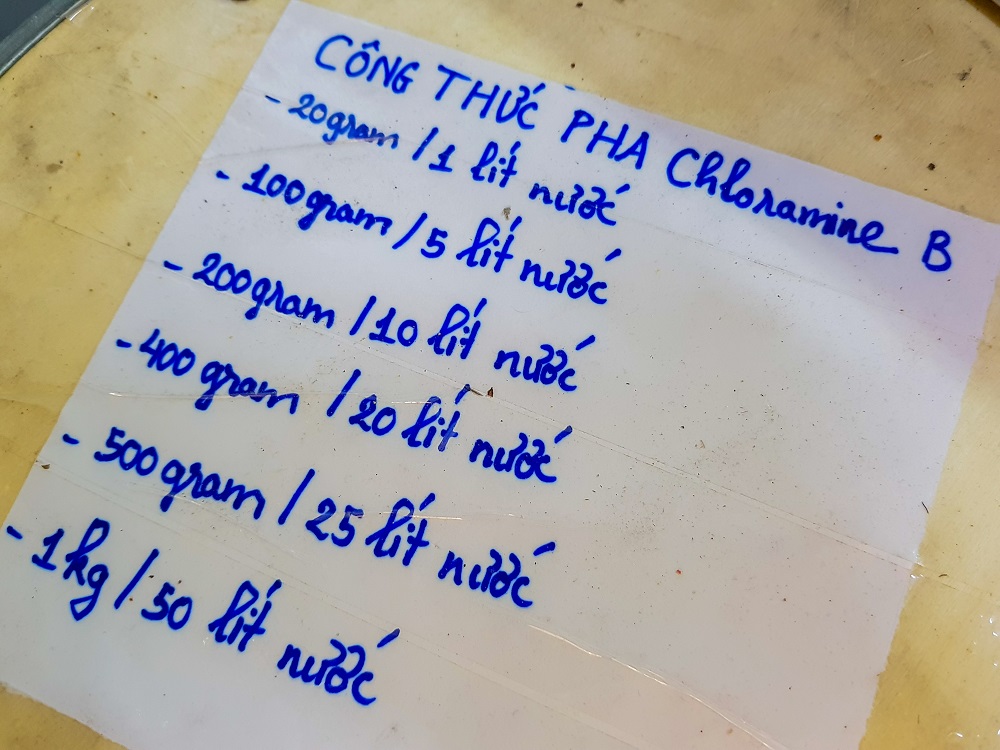 CÔNG THỨC PHA Chloramine B
- 20gram / 1 lít nước
- 100gram / 5 lít nước
- 200gram / 10 lít nước
- 400 gram / 20 lít nước
- 500gram / 25 lít nước
- 1kg / 50 lít nước